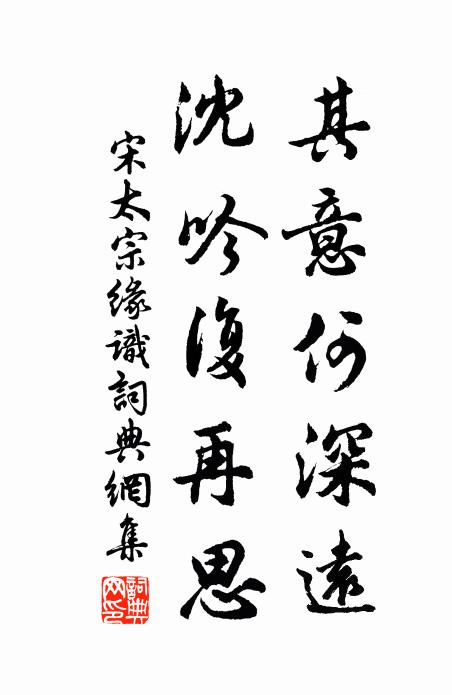 其意何深遠
沈吟復再思
宋太宗緣識詞典網集
詞典網印